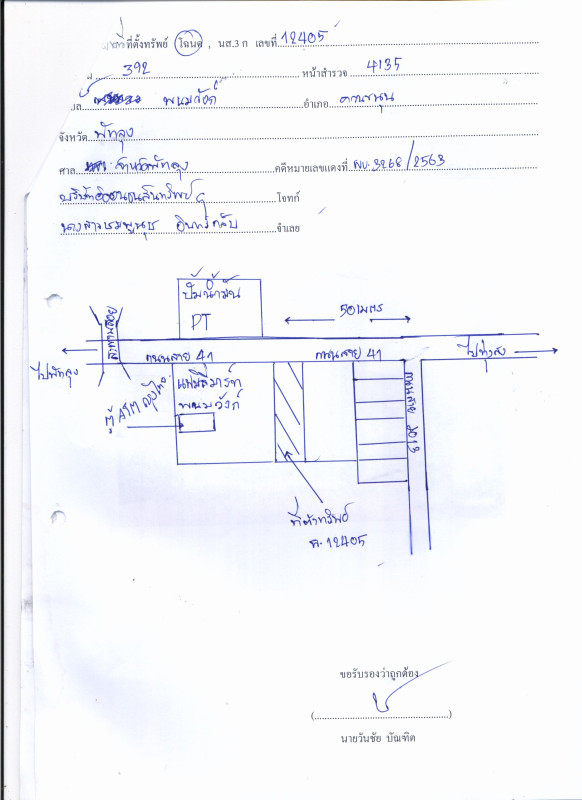 ที่ตั้งทรัพย์ โฉนด , นส.3 ก เลขที่ 12405
392 หน้าสำรวจ 4135
พนมวังก์ อำเภอ ควนขนุน
จังหวัด พัทลุง
ศาล จังหวัดพัทลุง คดีหมายเลขแดงที่ ผบ.3268/2563
โจทก์
นางสาวชมพูนุช จำเลย
ปั๊มน้ำมัน
PT
50 เมตร
สะพานลอย
ถนนสาย 41
ถนนสาย 41
ไปทุ่งสง
ไปพัทลุง
พนมวังก์
ถนนสาย
ที่ตั้งทรัพย์
ฉ. 12405
ขอรับรองว่าถูกต้อง
(....................)
นายวันชัย บัณฑิต